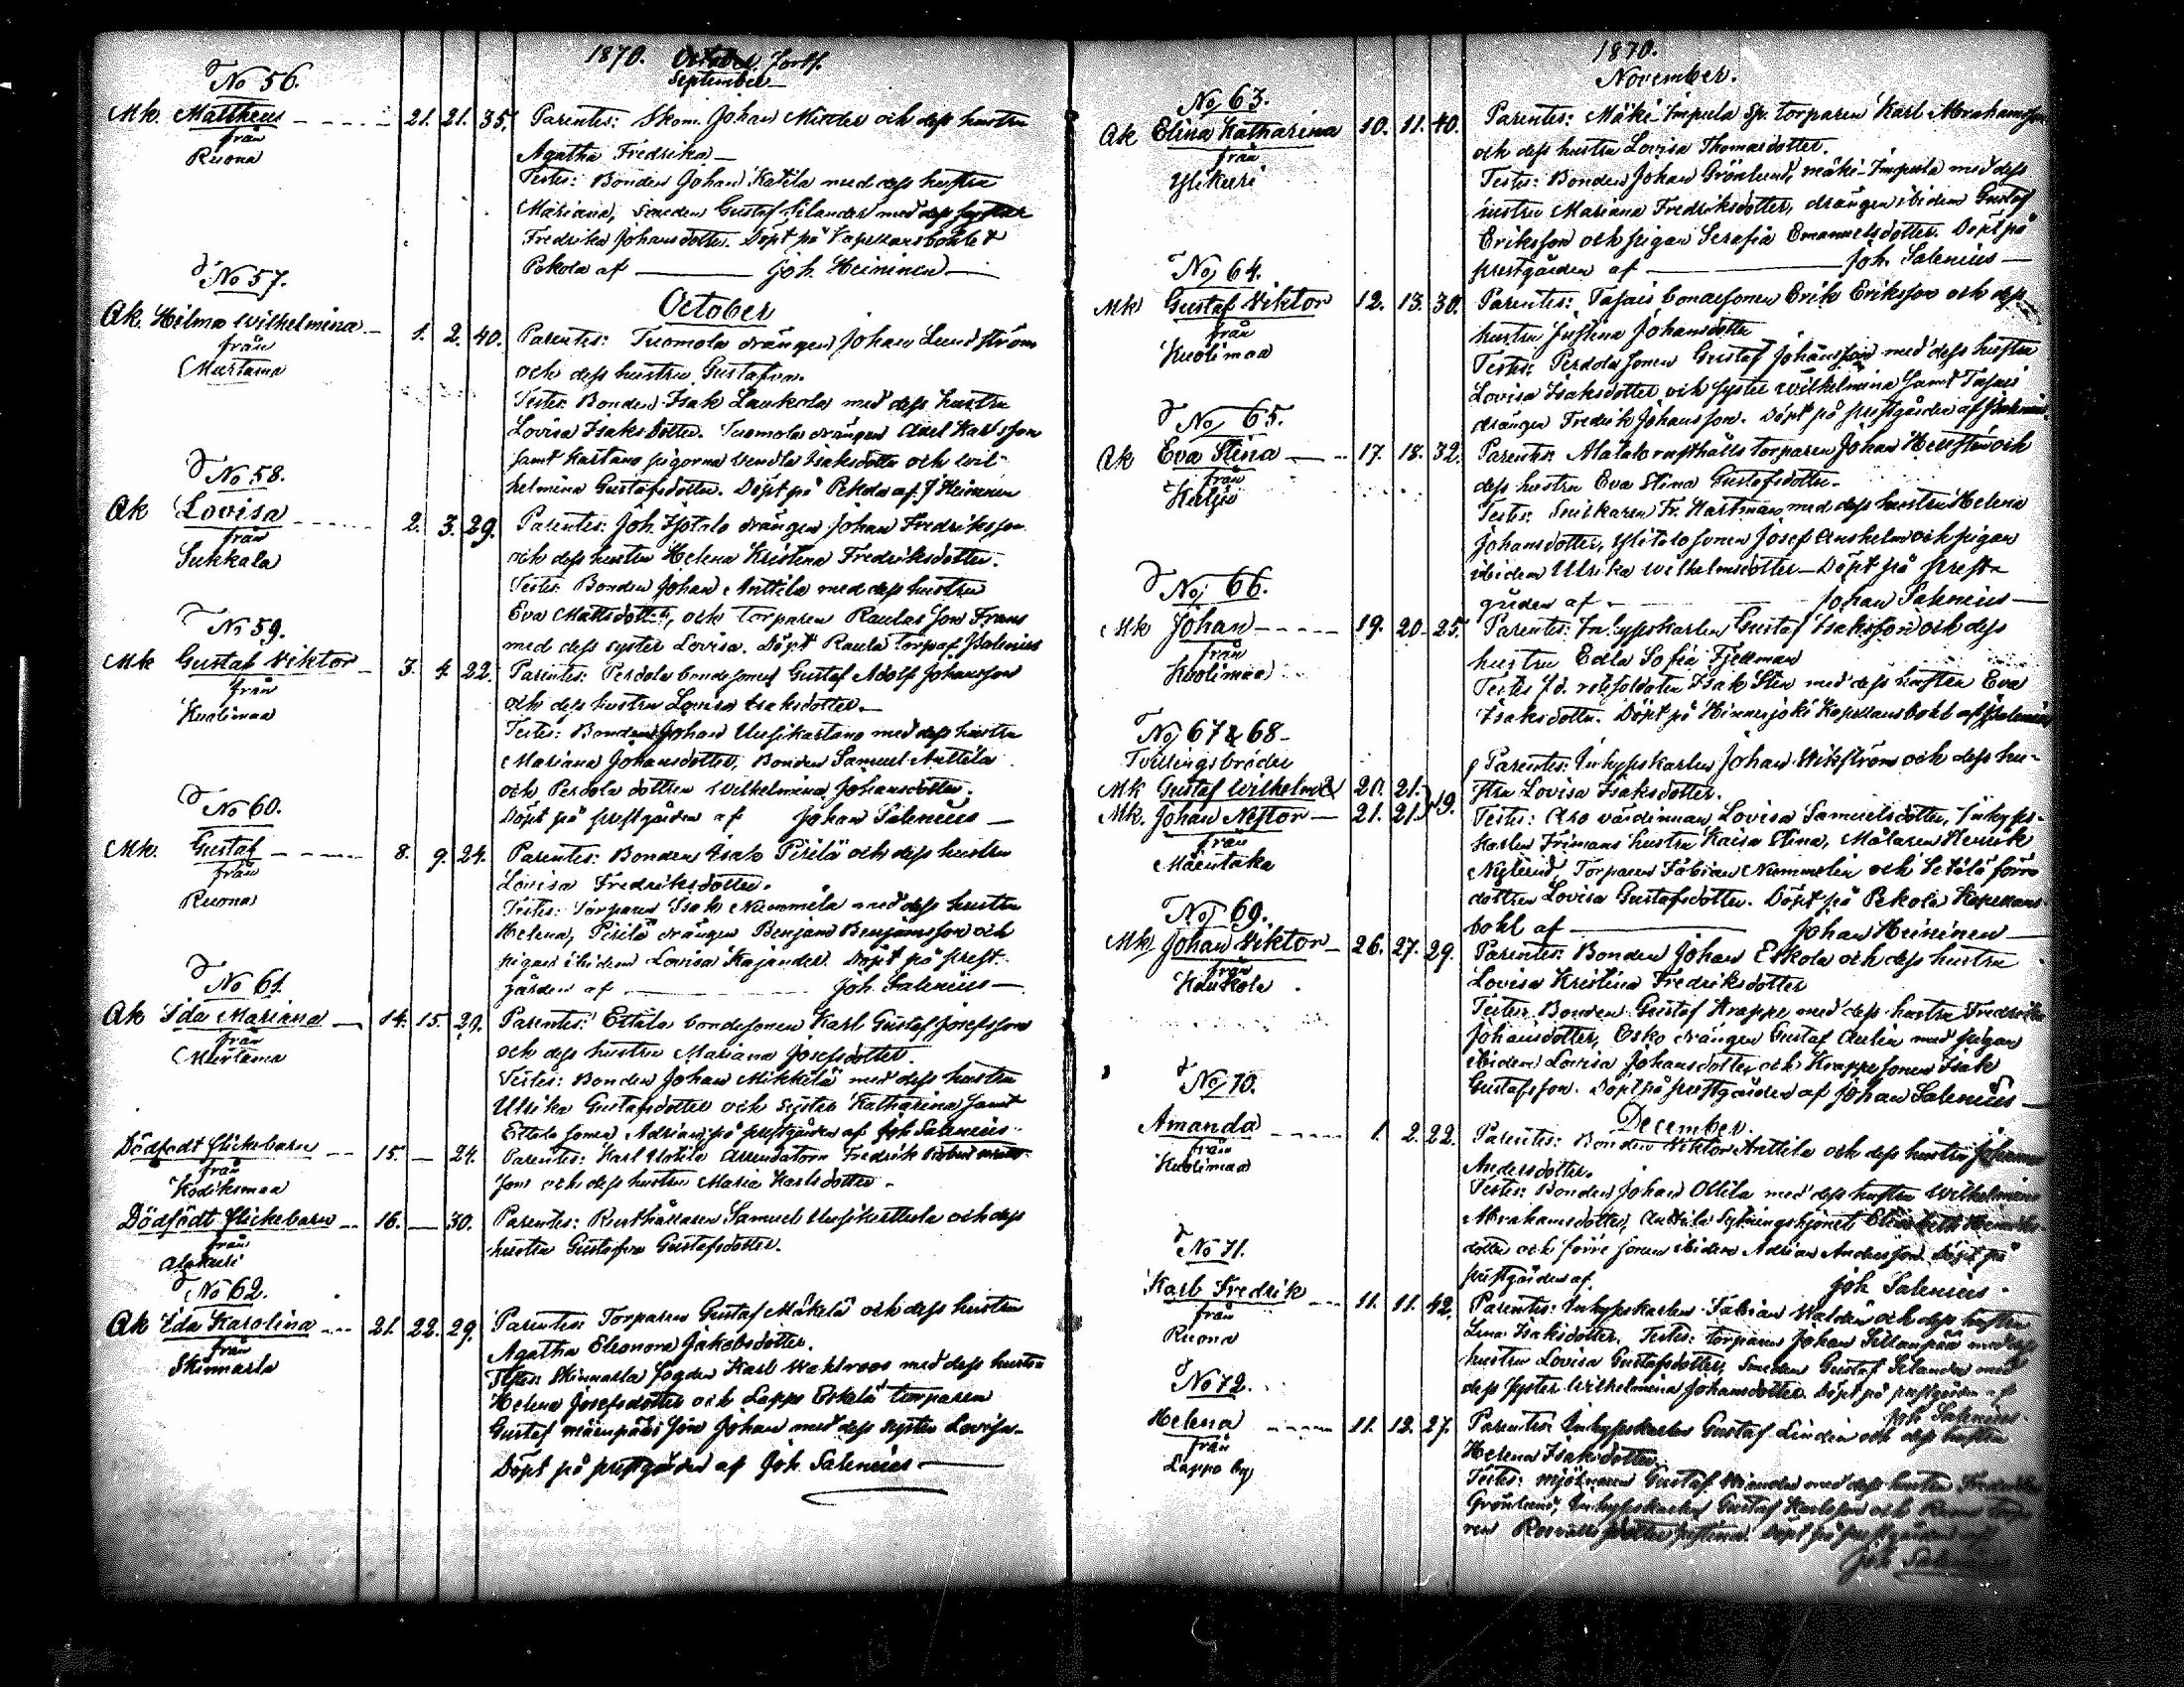 1870. October. fortf.
September
No 56.
Mk. Mattheus 21. 21. 35. Parentes: Skom. Johan Minder och dess hustru
från
Ruona
Agatha Fredrika
Testes: Bonden Johan Katila med dess hustru
Mariana, Smeden Gustaf Silander med dess syster
Fredrika Johansdotter. Döpt på Kapellansbohlet
Pekola af Joh. Heininen
October
No 57.
Ak. Hilma Wilhelmina 1. 2. 40. Parentes: Tuomola drängen Johan Lundström
från
Murtama
och dess hustru Gustafva.
Testes: Bonden Isak Laukola med dess hustru
Lovisa Isaksdotter. Tuomola drängen Axel Karlsson
samt Kartano pigorna Wendla Isaksdotter och Wil-
helmina Gustafsdotter. Döpt på Pekola af J Heininen
No 58.
Ak Lovisa 2. 3. 29. Parentes: Joh. Isotalo drängen Johan Fredriksson
från
Sukkala
och dess hustru Helena Kristina Fredriksdotter.
Testes: Bonden Johan Anttila med dess hustru
Eva Mattsdotter, och torparen Raulas son Frans
med dess syster Lovisa. Döpt Raula torp af JSalenius
No 59.
Mk Gustaf Viktor 3. 4. 22. Parentes: Perdola bondesonen Gustaf Adolf Johansson
från
Kuolimaa
och dess hustru Lovisa Isaksdotter.
Testes: Bonden Johan Uusikartano med dess hustru
Mariana Johansdotter, Bonden Samuel Anttila
och Perdola dottren Wilhelmina Johansdotter.
Döpt på prestgården af Johan Salenius
No 60.
Mk. Gustaf 8. 9. 24. Parentes: Bonden Isak Pirilä och dess hustru
från
Ruona
Lovisa Fredriksdotter.
Testes: Torparen Isak Nummela med dess hustru
Helena, Pirilä drängen Benjam Benjamsson och
pigan ibidem Lovisa Kajander. Döpt på prest-
gården af Joh. Salenius
No 61.
Ak Ida Mariana 14. 15. 29. Parentes: Ettala bondesonen Karl Gustaf Josefsson
från
Murtama
och dess hustru Mariana Josefsdotter.
Testes: Bonden Johan Mikkilä med dess hustru
Ulrika Gustafsdotter och syster Katharina samt
Ettala sonen Adrian, på prestgården af Joh Salenius
Dödfödt flickebarn 15. — 24. Parentes: Karl Uotila Arrendatorn Fredrik
från
Kodiksmaa
son och dess hustru Maria Karlsdotter.
Dödfödt flickebarn 16. — 30. Parentes: Rusthållaren Samuel Uusikerttula och dess
från
Alakuri
hustru Gustafva Gustafsdotter.
No 62.
Ak Ida Karolina 21. 22. 29. Parentes: Torparen Gustaf Mäkelä och dess hustru
från
Skinnarla
Agatha Eleonora Jakobsdotter.
Testes: Skinnarla Fogden Karl Wahlroos med dess hustru
Helena Josefsdotter och Lappo Eskola torparen
Gustaf Mäenpääs son Johan med dess syster Lovisa.
Döpt på prestgården af Joh. Salenius
1870.
November.
No 63.
Ak Elina Katharina 10. 11. 40. Parentes: Mäki-Impula Sp. torparen Karl Abrahamsson
från
Ylikuri
och dess hustru Lovisa Thomasdotter.
Testes: Bonden Johan Grönlund, Mäki-Impula med dess
hustru Mariana Fredriksdotter, drängen ibidem Gustaf
Eriksson och pigan Serafia Emanuelsdotter. Döpt på
prestgården af Joh. Salenius
No 64.
Mk Gustaf Viktor 12. 13. 30. Parentes: Tasais bondesonen Erik Eriksson och dess
från
Kuolimaa
hustru Justina Johansdotter
Testes: Perdola sonen Gustaf Johansson med dess hustru
Lovisa Isaksdotter och syster Wilhelmina samt Tasais
drängen Fredrik Johansson. Döpt på prestgården af JSalenius.
No 65.
Ak Eva Stina 17. 18. 32. Parentes: Alatalo rusthålls torparen Johan Hellsten och
från
Kaljo
dess hustru Eva Stina Gustafsdotter.
Testes: Snickaren Fr. Hartman med dess hustru Helena
Johansdotter, Ylitalo sonen Josef Anshelm och pigan
ibidem Ulrika Wilhelmsdotter. Döpt på prest-
gården af Johan Salenius
No 66.
Mk Johan 19. 20. 25. Parentes: Inhyseskarlen Gustaf Isaksson och dess
från
Kuolimaa
hustru Edla Sofia Fjellman
Testes: f.d. rotesoldaten Isak Sten med dess hustru Eva
Isaksdotter. Döpt på Hinnerjoki Kapellansbohl af JSalenius
No 67 & 68
Tvillingsbröder
Mk Gustaf Wilhelm & 20. 21.
Mk. Johan Nestor 21. 21. 19.
från
Mäentaka
Parentes: Inhyseskarlen Johan Wikström och dess hu-
stru Lovisa Isaksdotter.
Testes: Aro värdinnan Lovisa Samuelsdotter, Inhyses-
karlen Frimans hustru Kaisa Stina, Målaren Henrik
Nylund, Torparen Fabian Nummelin och Setälä förre
dottren Lovisa Gustafsdotter. Döpt på Pekola Kapellans-
bohl af Johan Heininen
No 69.
Mk. Johan Viktor 26. 27. 29. Parentes: Bonden Johan Eskola och dess hustru
från
Haukola
Lovisa Kristina Fredriksdotter
Testes: Bonden Gustaf Krappe med dess hustru Fredrika
Johansdotter, Esko drängen Gustaf Aulin med pigan
ibidem Lovisa Johansdotter och Krappe sonen Isak
Gustafsson. Döpt på prestgården af Johan Salenius
December.
No 70.
Amanda 1. 2. 22. Parentes: Bonden Viktor Anttila och dess hustru Johanna
från
Kuolimaa
Andersdotter.
Testes: Bonden Johan Ollila med dess hustru Wilhelmina
Abrahamsdotter, Anttila Sytningshjonet Elisabeth Henriks-
dotter och förre sonen ibidem Adrian Andersson. Döpt på
prestgården af Joh Salenius.
No 71.
Karl Fredrik 11. 11. 42. Parentes: Inhyseskarlen Fabian Waldén och dess hustru
från
Ruona
Lena Isaksdotter. Testes: torparen Johan Sillanpää med dess
hustru Lovisa Gustafsdotter, Smeden Gustaf Silander med
dess syster Wilhelmina Johansdotter. Döpt på prestgården af
Joh Salenius.
No 72.
Helena 11. 12. 27. Parentes: Inhyseskarlen Gustaf Lindén och dess hustru
från
Lappo by
Helena Isaksdotter.
Testes: Mjölnaren Gustaf med dess hustru Fredrika
Grönlund, Inhyseskarlen Gustaf Karlsson och
Justina. Döpt på prestgården af
Joh Salenius